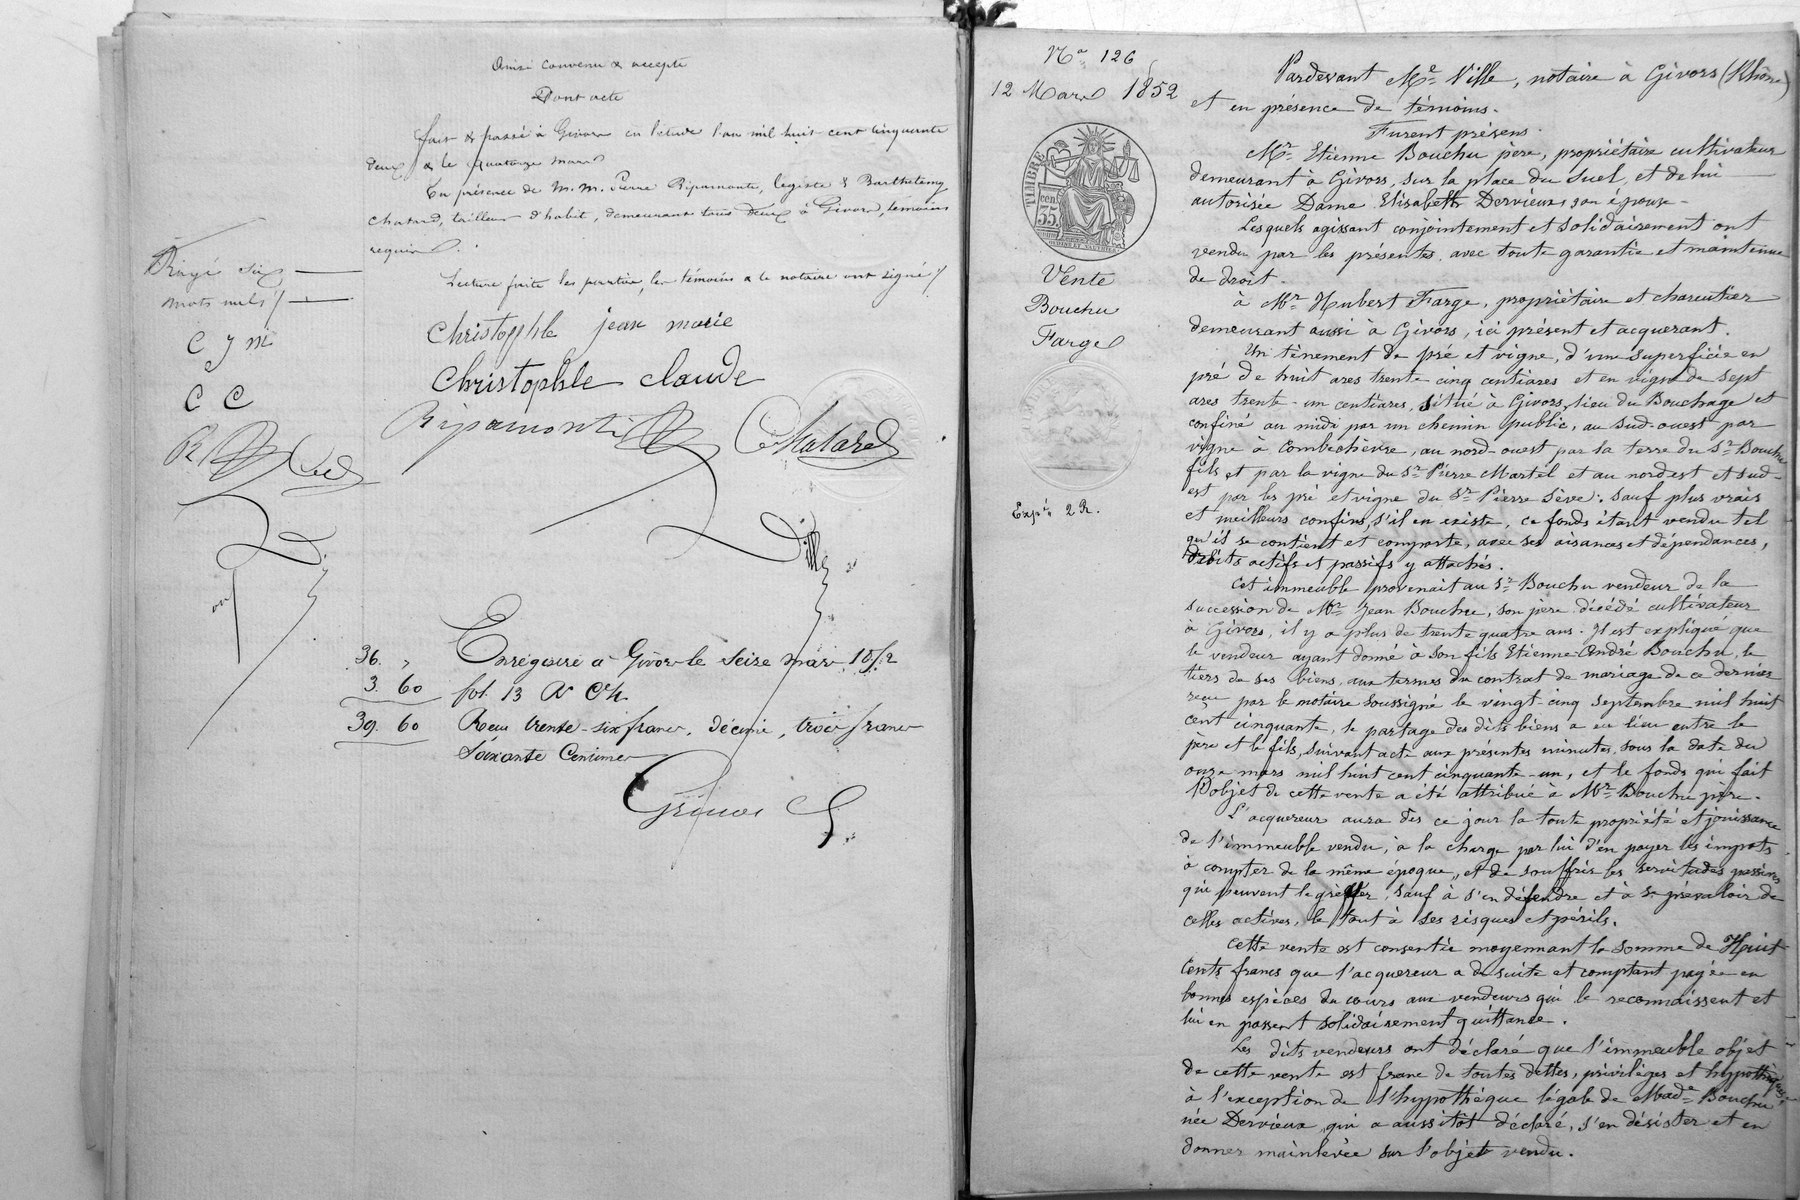 Ainsi convenu & accepté
Dont acte
fait & passé à Givors en l'étude l'an mil huit cent cinquante
deux & le quatorze mars
En présence de M.M. Pierre Ripamonte, légiste & Barthelemy
Chatard, tailleur d'habit, demeurant tous deux à Givors, témoins
requis.
Lecture faite les parties, les témoins & le notaire ont signé /
Rayé six
mots nuls /
C J M
C C
Christophle jean marie
Christophle claude
Ripamonti
Chatard
Ville
36. "
3. 60
39. 60
Enregistré à Givors le seize mars 1852
fol. 13 Vo Ce
Reçu trente-six francs, décime, trois francs
Soixante Centimes
No 126
12 Mars 1852
TIMBRE
35 cen
Vente
Bouchu
Farge
Expé 2 R.
Pardevant Me Ville, notaire à Givors (Rhône)
et en présence de témoins.
Furent présens
Mr Etienne Bouchu père, propriétaire cultivateur
demeurant à Givors, sur la place du Suel, et de lui
autorisée Dame Elisabeth Dervieux son épouse
Lesquels agissant conjointement et solidairement ont
vendu par les présentes, avec toute garantie et maintenue
de droit.
à Mr Hubert Farge, propriétaire et charcutier
demeurant aussi à Givors, ici présent et acquerant.
Un tènement de pré et vigne, d'une superficie en
pré de huit ares trente cinq centiares et en vigne de sept
ares trente-un centiares, situé à Givors, lieu du Bouchage et
confiné au midi par un chemin public, au sud-ouest par
vigne à Combechèvre, au nord-ouest par la terre du Sr Bouchu
fils et par la vigne du Sr Pierre Martel et au nord est et sud-
est par les pré et vigne du Sr Pierre Sève; sauf plus vrais
et meilleurs confins, s'il en existe, ce fonds étant vendu tel
qu'il se contient et comporte, avec ses aisances et dépendances,
droits actifs et passifs y attachés.
Cet immeuble provenait au Sr Bouchu vendeur de la
succession de Mr Jean Bouchu, son père décédé cultivateur
à Givors, il y a plus de trente quatre ans. Il est expliqué que
le vendeur ayant donné à son fils Etienne-André Bouchu, le
tiers de ses biens, aux termes du contrat de mariage de ce dernier
reçu par le notaire soussigné le vingt-cinq septembre mil huit
cent cinquante, le partage des dits biens a eu lieu entre le
père et le fils, suivant acte aux présentes minutes, sous la date du
onze mars mil huit cent cinquante-un, et le fonds qui fait
l'objet de cette vente a été attribué à Mr Bouchu père.
L'acquereur aura dès ce jour la toute propriété et jouissance
de l'immeuble vendu, à la charge par lui d'en payer les impots
à compter de la même époque, et de souffrir les servitudes passives
qui peuvent le grèver, sauf à s'en défendre et à se prévaloir de
celles actives, le tout à ses risques et périls.
Cette vente est consentie moyennant la somme de Huit
Cents francs que l'acquereur a de suite et comptant payée en
bonnes espèces du cours aux vendeurs qui le reconnaissent et
lui en passent solidairement quittance.
Les dits vendeurs ont déclaré que l'immeuble objet
de cette vente est franc de toutes dettes, privilèges et hypothèques,
à l'exception de l'hypothèque légale de Made Bouchu
née Dervieux, qui a aussitôt déclaré, s'en désister et en
donner mainlevée sur l'objet vendu.